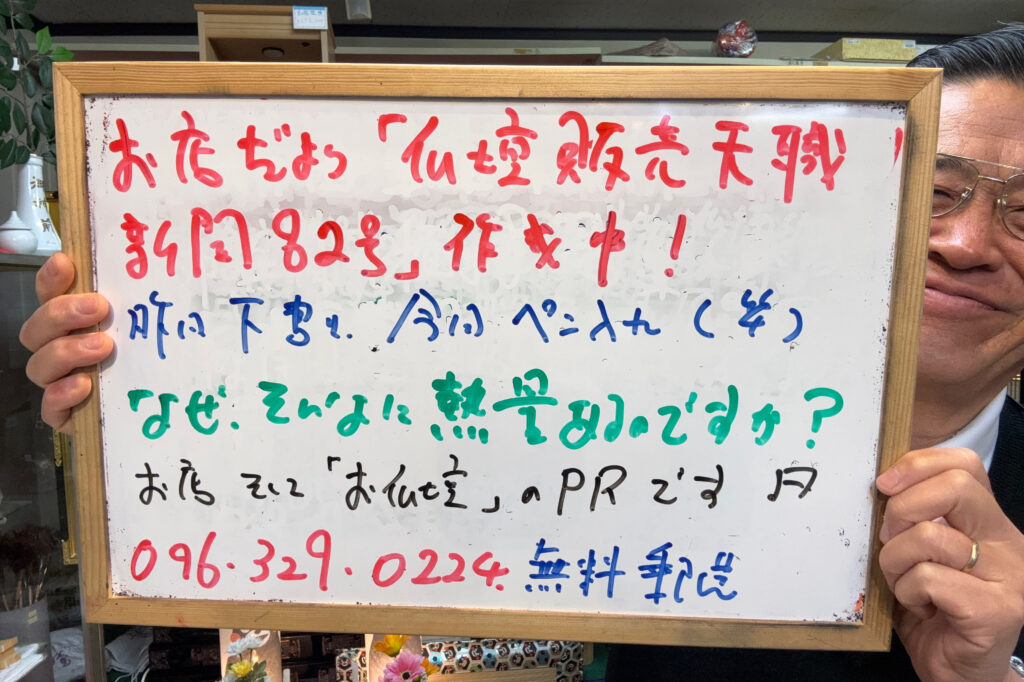 お店だよう「仏壇販売天職
新聞82号」作成中!
昨日下書き、今日ペン入れ(笑)
なぜ、そんなに熱量あるのですか?
お店そして「お仏壇」のPRです
096.329.0224. 無料郵送